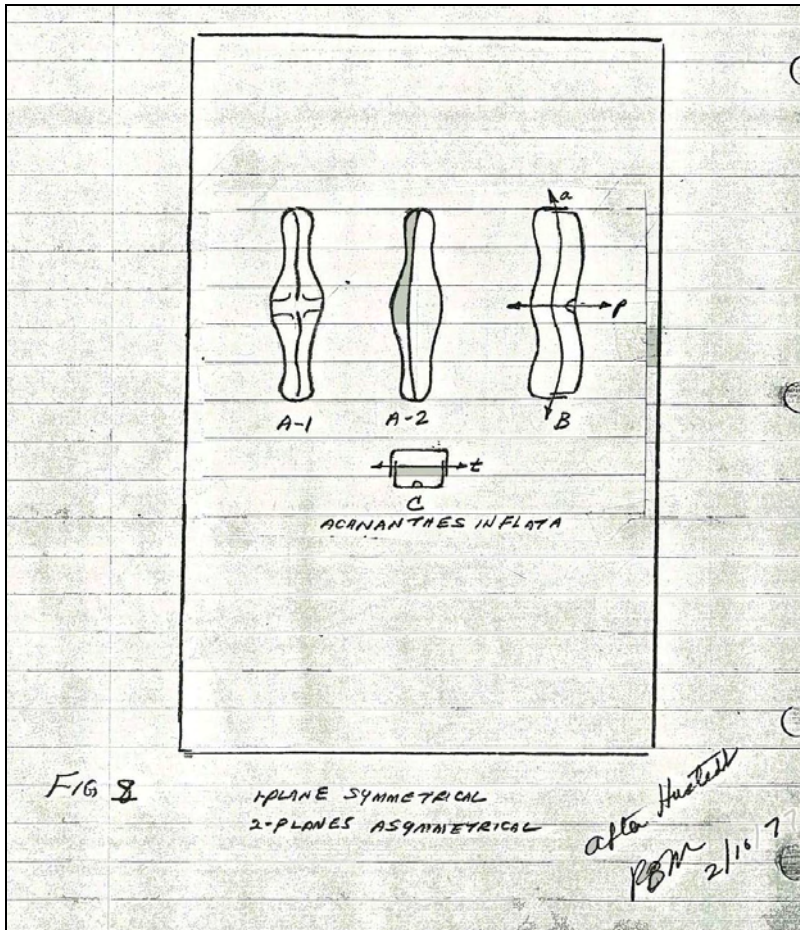 a
p
A-1 A-2 B
t
C
ACANANTHES INFLATA
FIG 8
1-PLANE SYMMETRICAL
2-PLANES ASYMMETRICAL
after Hustedt
PBM 2/10 7